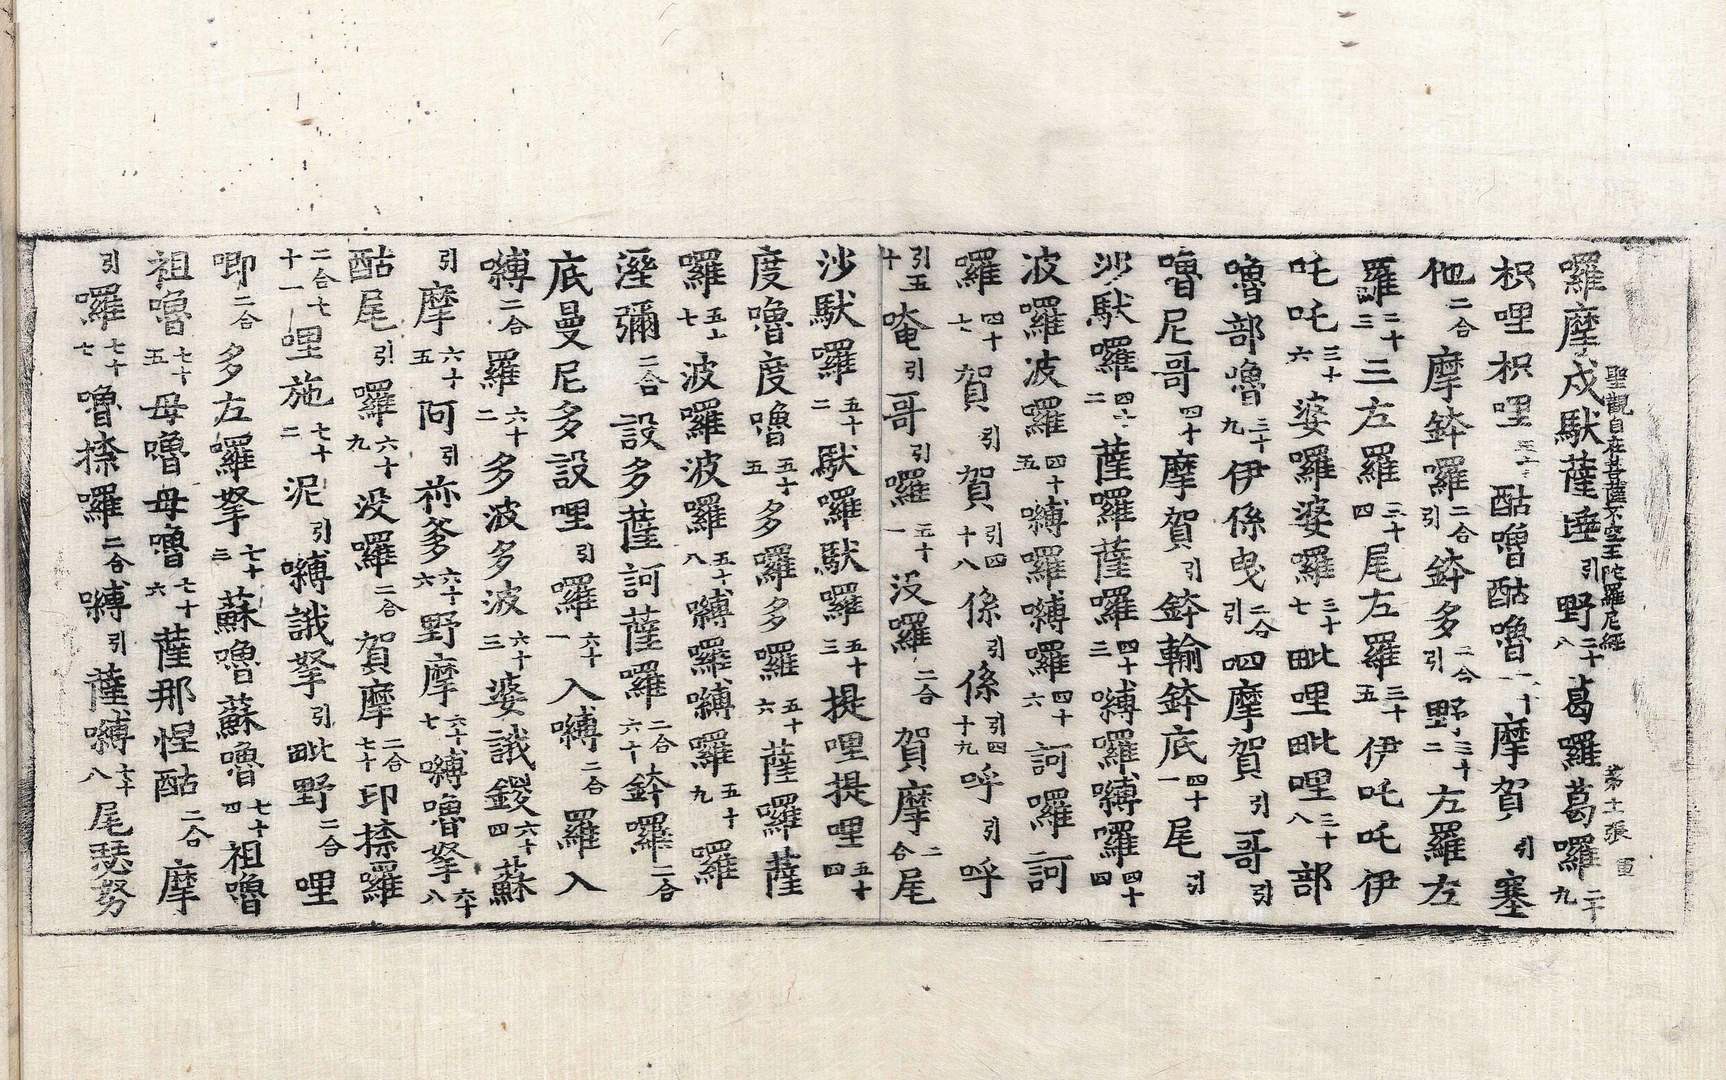 聖觀自在菩薩不空王陀羅尼經 第十一張 更
囉摩戍馱薩埵引野二十八葛羅葛囉二十九
枳哩枳哩三十酤嚕酤嚕三十一摩賀引塞
他二合摩鉢囉二合引鉢多二合引野三十二左羅左
羅三十三三左羅三十四尾左羅三十五伊吒吒伊
吒吒三十六婆囉婆囉三十七毗哩毗哩三十八部
嚕部嚕三十九伊係曳二合引呬摩賀引哥引
嚕尼哥四十摩賀引鉢輸鉢底四十一尾引
沙馱囉四十二薩囉薩囉四十三嚩囉嚩囉四十四
波囉波囉四十五嚩囉嚩囉四十六訶囉訶
囉四十七賀引賀引四十八係引係引四十九呼引呼
引五十唵引哥引囉五十一沒囉二合賀摩二合尾
沙馱囉五十二馱囉馱囉五十三提哩提哩五十四
度嚕度嚕五十五多囉多囉五十六薩囉薩
囉五十七波囉波囉五十八嚩囉嚩囉五十九囉
溼彌二合設多薩訶薩囉二合六十鉢囉二合
底曼尼多設哩引囉六十一入嚩二合羅入
嚩二合羅六十二多波多波六十三婆誐鑁六十四蘇
引摩六十五阿引祢爹六十六野摩六十七嚩嚕拏六十八
酤尾引囉六十九沒囉二合賀摩二合七十印捺囉
二合七十一哩施七十二泥引嚩誐拏引毗野二合哩
唧二合多左囉拏七十三蘇嚕蘇嚕七十四祖嚕
祖嚕七十五母嚕母嚕七十六薩那惺酤二合摩
引囉七十七嚕捺囉二合嚩引薩嚩七十八尾瑟努